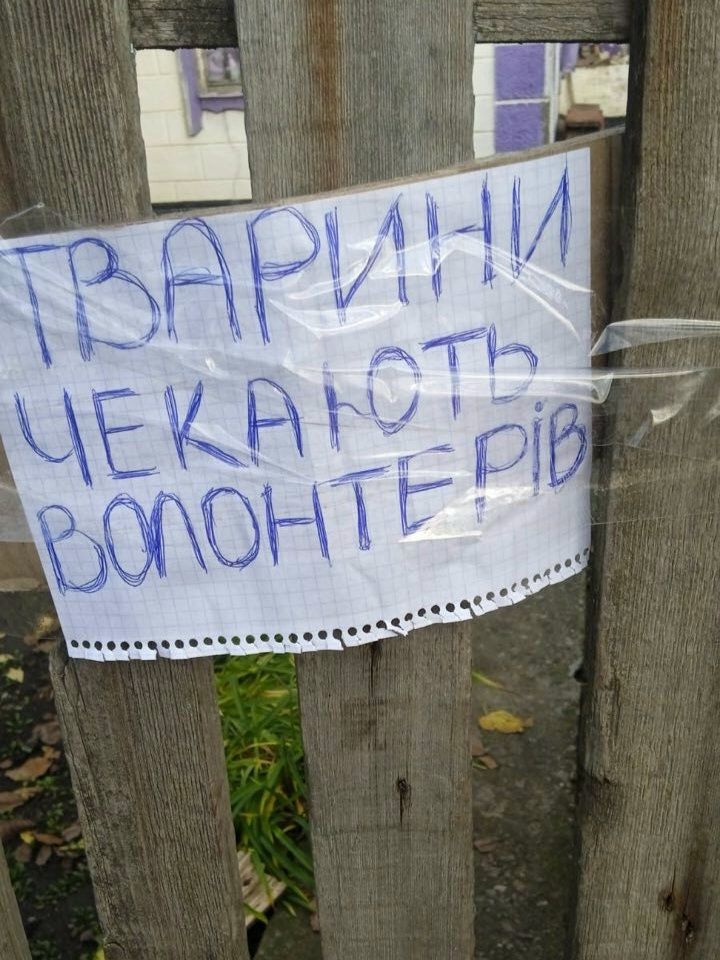 ТВАРИНИ
ЧЕКАЮТЬ
ВОЛОНТЕРІВ